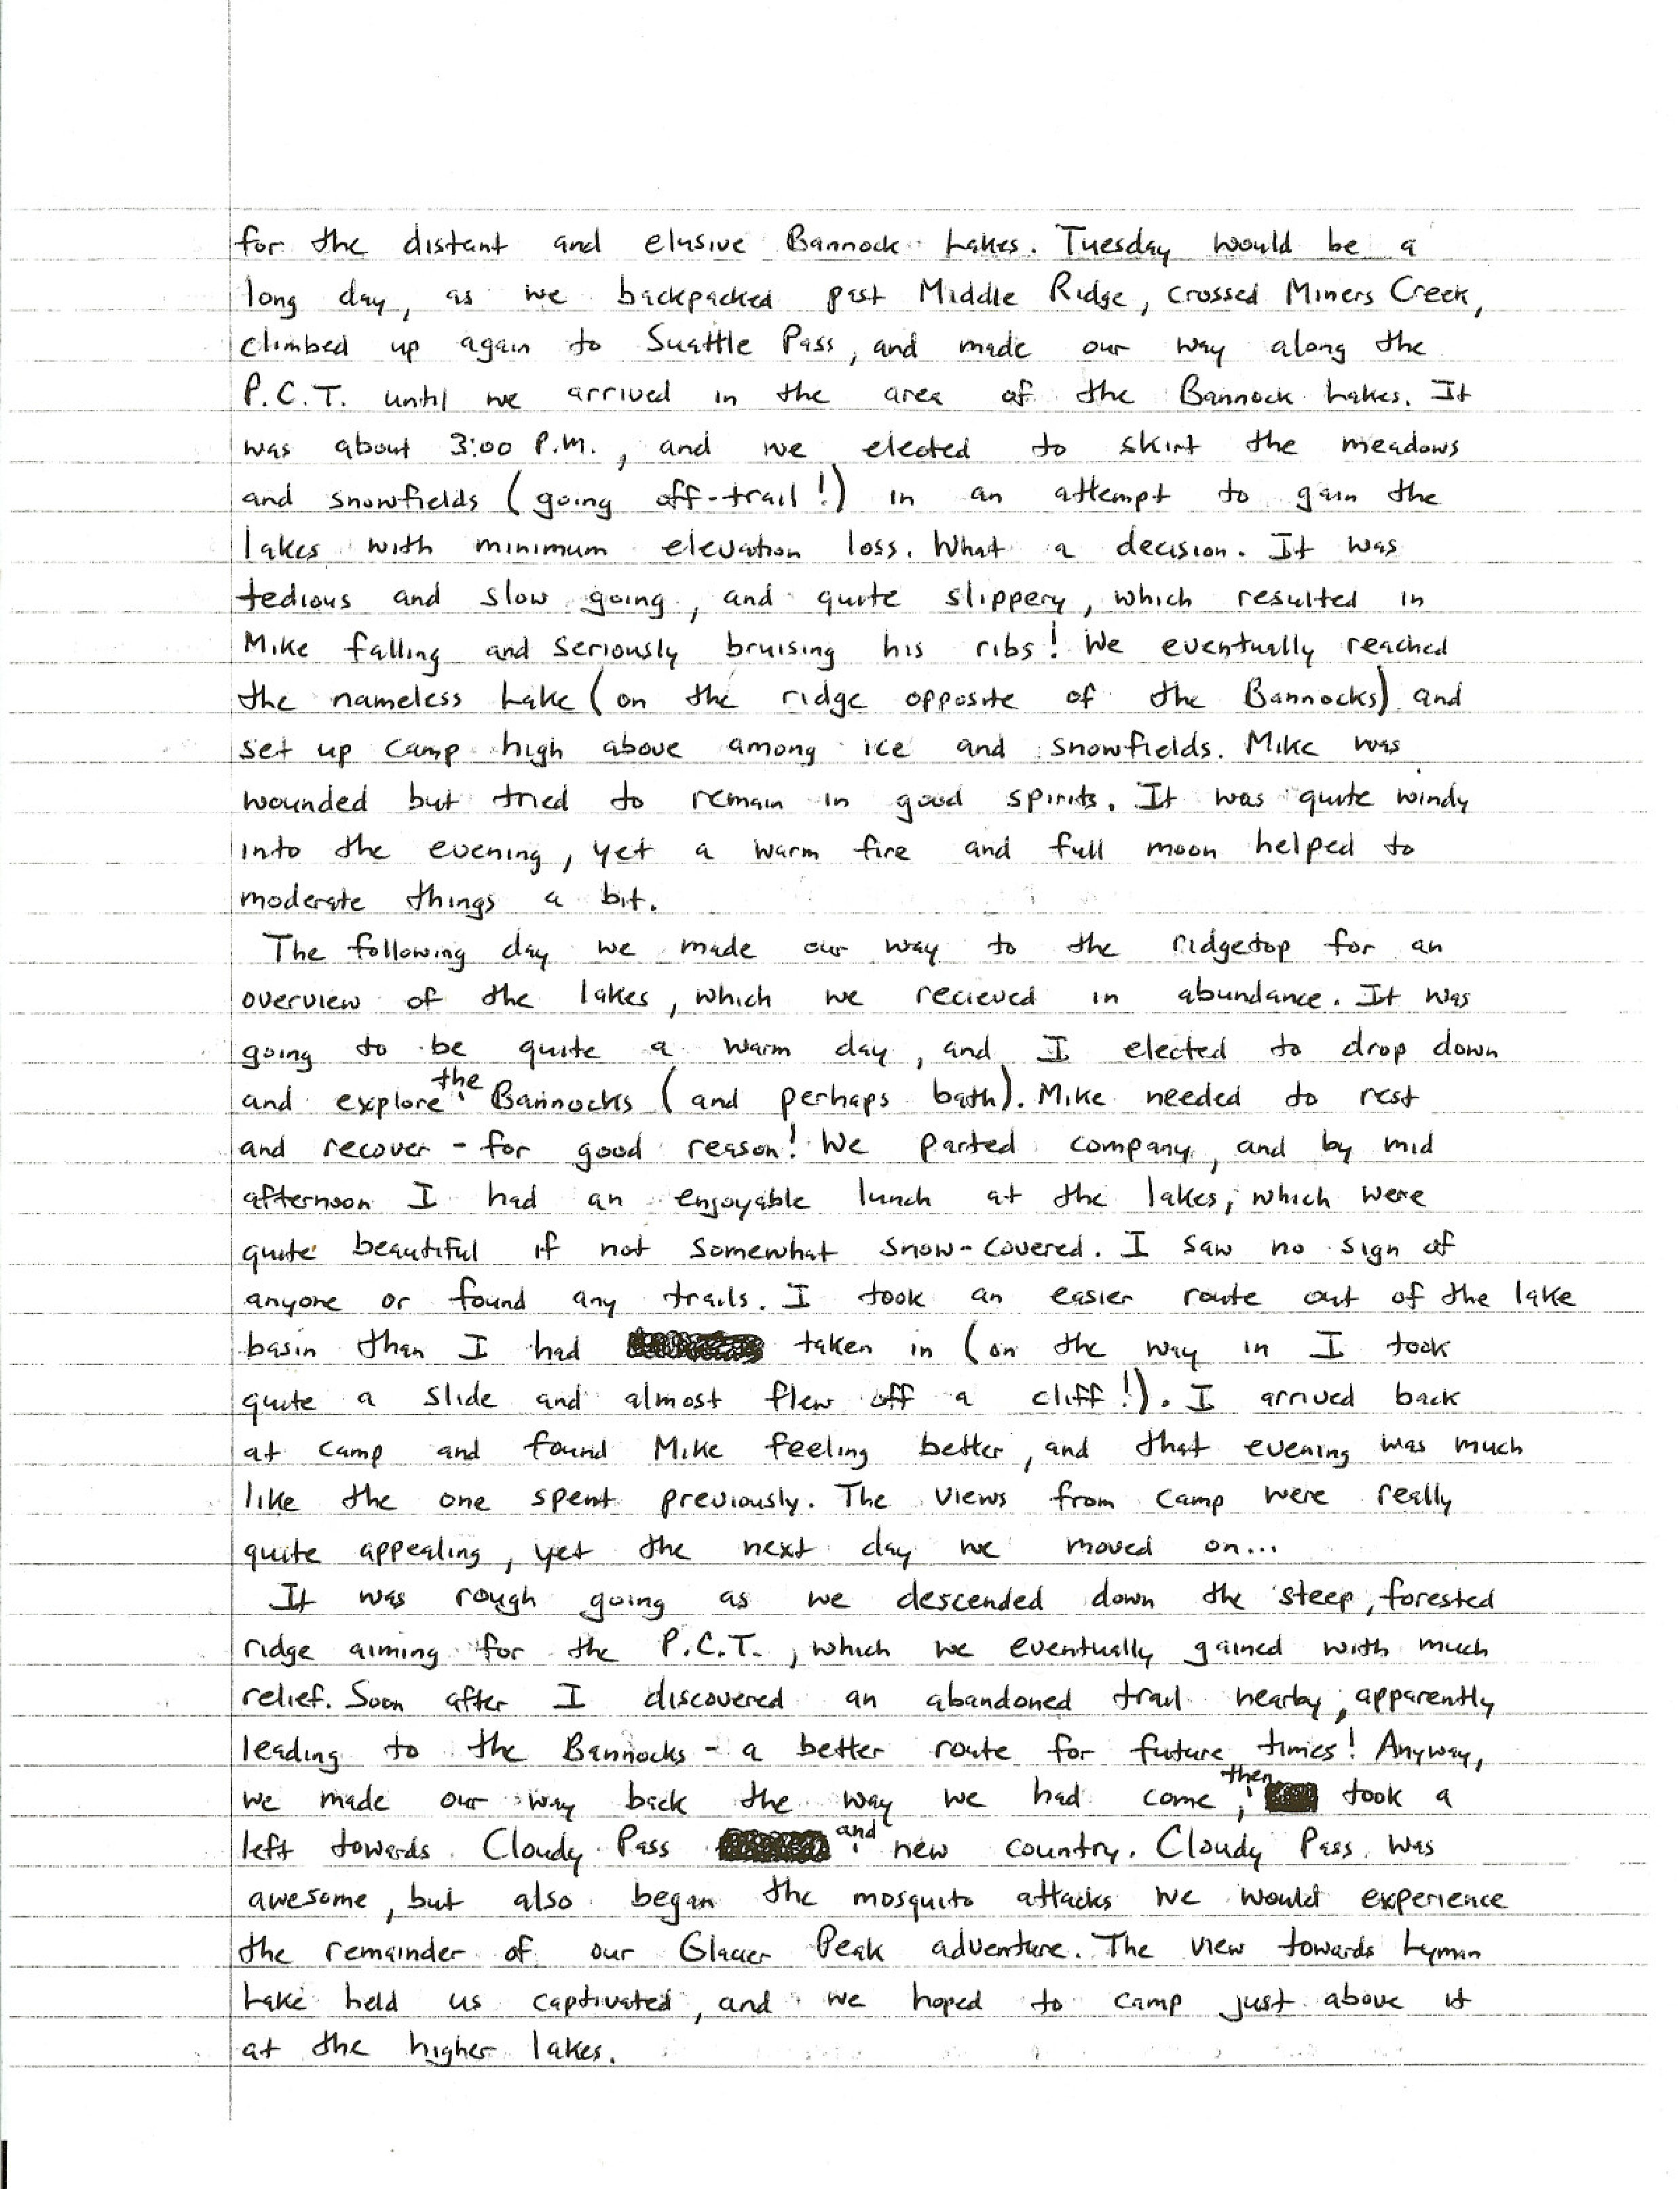 for the distant and elusive Bannock Lakes. Tuesday would be a
long day, as we backpacked past Middle Ridge, crossed Miners Creek,
climbed up again to Suattle Pass, and made our way along the
P.C.T. until we arrived in the area of the Bannock Lakes. It
was about 3:00 P.M., and we elected to skirt the meadows
and snowfields (going off-trail!) in an attempt to gain the
lakes with minimum elevation loss. What a decision. It was
tedious and slow going, and quite slippery, which resulted in
Mike falling and seriously bruising his ribs! We eventually reached
the nameless Lake (on the ridge opposite of the Bannocks) and
set up camp high above among ice and snowfields. Mike was
wounded but tried to remain in good spirits. It was quite windy
into the evening, yet a warm fire and full moon helped to
moderate things a bit.
The following day we made our way to the ridgetop for an
overview of the lakes, which we recieved in abundance. It was
going to be quite a warm day, and I elected to drop down
and explore the Bannocks (and perhaps bath). Mike needed to rest
and recover - for good reason! We parted company, and by mid
afternoon I had an enjoyable lunch at the lakes, which were
quite beautiful if not somewhat snow-covered. I saw no sign of
anyone or found any trails. I took an easier route out of the lake
basin than I had taken in (on the way in I took
quite a slide and almost flew off a cliff!). I arrived back
at camp and found Mike feeling better, and that evening was much
like the one spent previously. The views from camp were really
quite appealing, yet the next day we moved on...
It was rough going as we descended down the steep, forested
ridge aiming for the P.C.T., which we eventually gained with much
relief. Soon after I discovered an abandoned trail nearby, apparently
leading to the Bannocks - a better route for future times! Anyway,
we made our way back the way we had come, then took a
left towards Cloudy Pass and new country. Cloudy Pass was
awesome, but also began the mosquito attacks we would experience
the remainder of our Glacier Peak adventure. The view towards Lyman
Lake held us captivated, and we hoped to camp just above it
at the higher lakes.